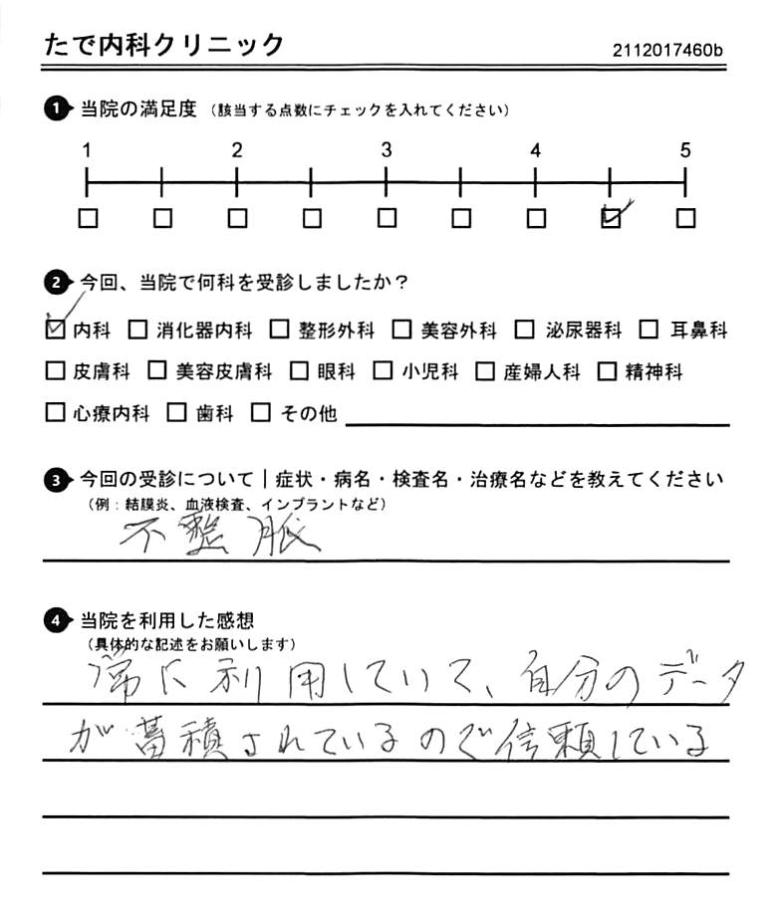 たで内科クリニック 2112017460b
1 当院の満足度 (該当する点数にチェックを入れてください)
1 2 3 4 5
□ □ □ □ □ □ □ ☑ □
2 今回、当院で何科を受診しましたか?
☑ 内科 □ 消化器内科 □ 整形外科 □ 美容外科 □ 泌尿器科 □ 耳鼻科
□ 皮膚科 □ 美容皮膚科 □ 眼科 □ 小児科 □ 産婦人科 □ 精神科
□ 心療内科 □ 歯科 □ その他
3 今回の受診について|症状・病名・検査名・治療名などを教えてください
(例:結膜炎、血液検査、インプラントなど)
不整脈
4 当院を利用した感想
(具体的な記述をお願いします)
常に利用していて、自分のデータ
が蓄積されているので信頼している